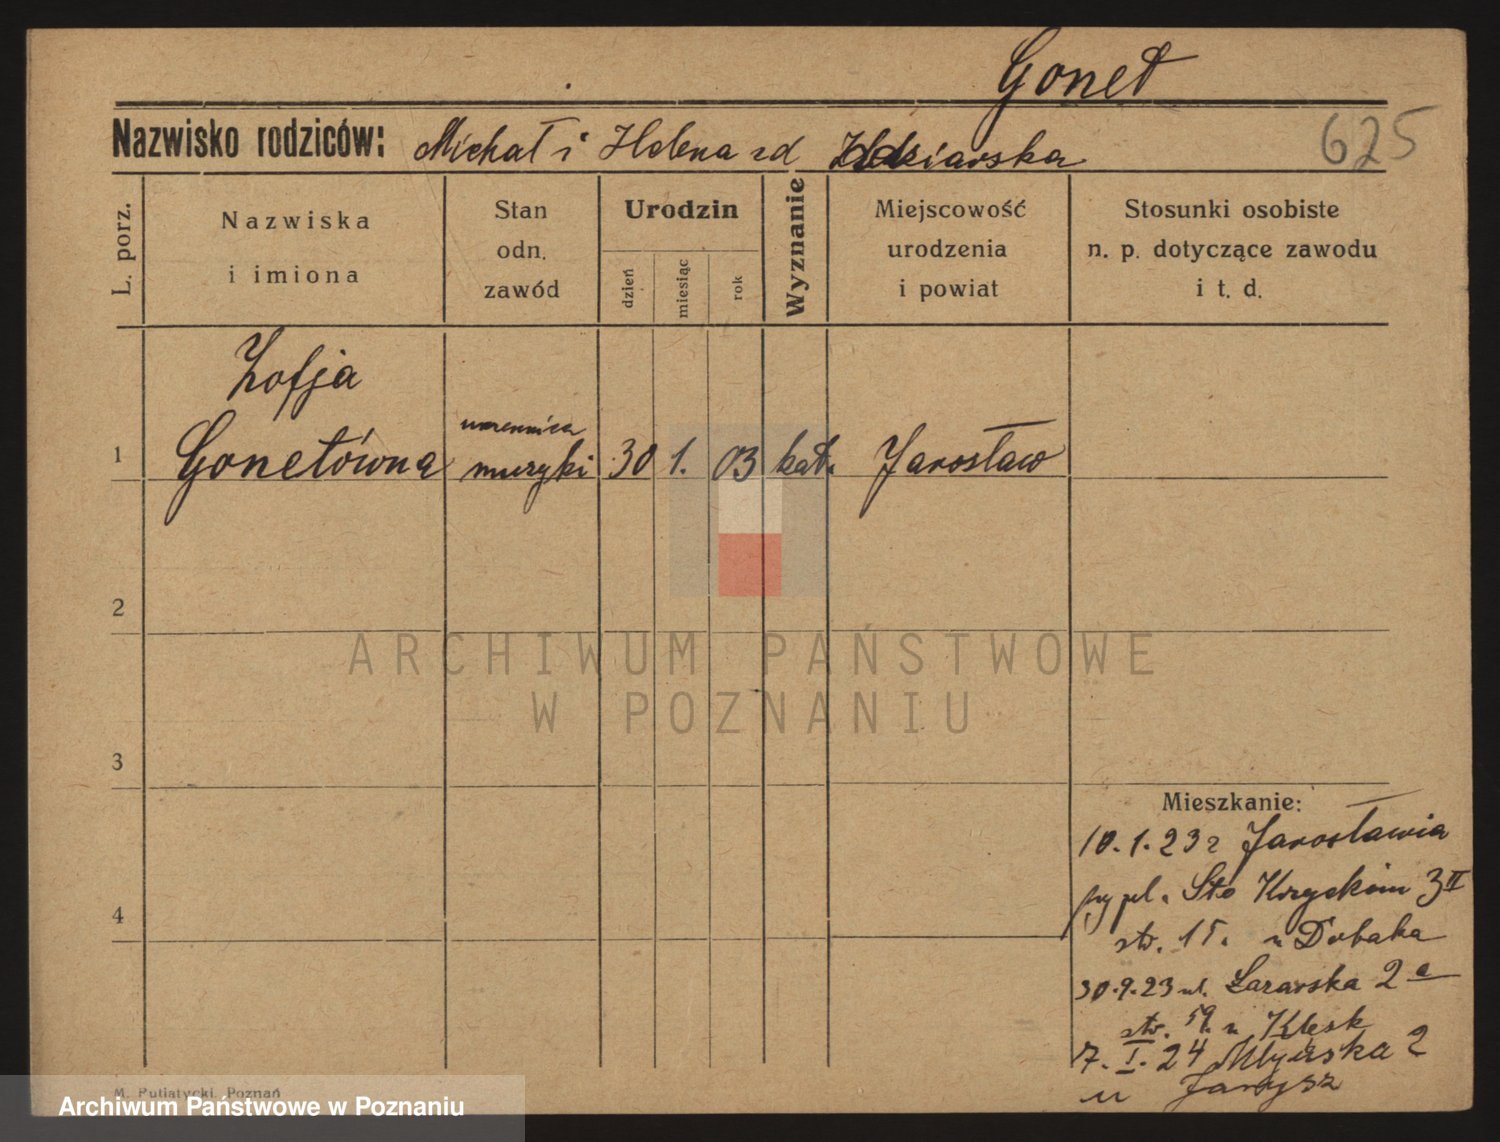 Gonet
Nazwisko rodziców: Michał i Helena zd
625
L. porz.
Nazwiska
i imiona
Stan
odn.
zawód
Urodzin
dzień
miesiąc
rok
Wyznanie
Miejscowość
urodzenia
i powiat
Stosunki osobiste
n. p. dotyczące zawodu
i t. d.
Zofja
1 Gonetówna uczennica muzyki 30 1. 03 kat. Jarosław
2
ARCHIWUM PAŃSTWOWE
W POZNANIU
3
4
Mieszkanie:
10.1.23 z Jarosławia
pl. Sto Krzyskim 3 II
str. 15. u Dubaka
30.9.23 ul. Łazarska 2a
str. 59. u Klesk
7. I. 24 Młyńska 2
u Janysz
M. Putiatycki, Poznań
Archiwum Państwowe w Poznaniu